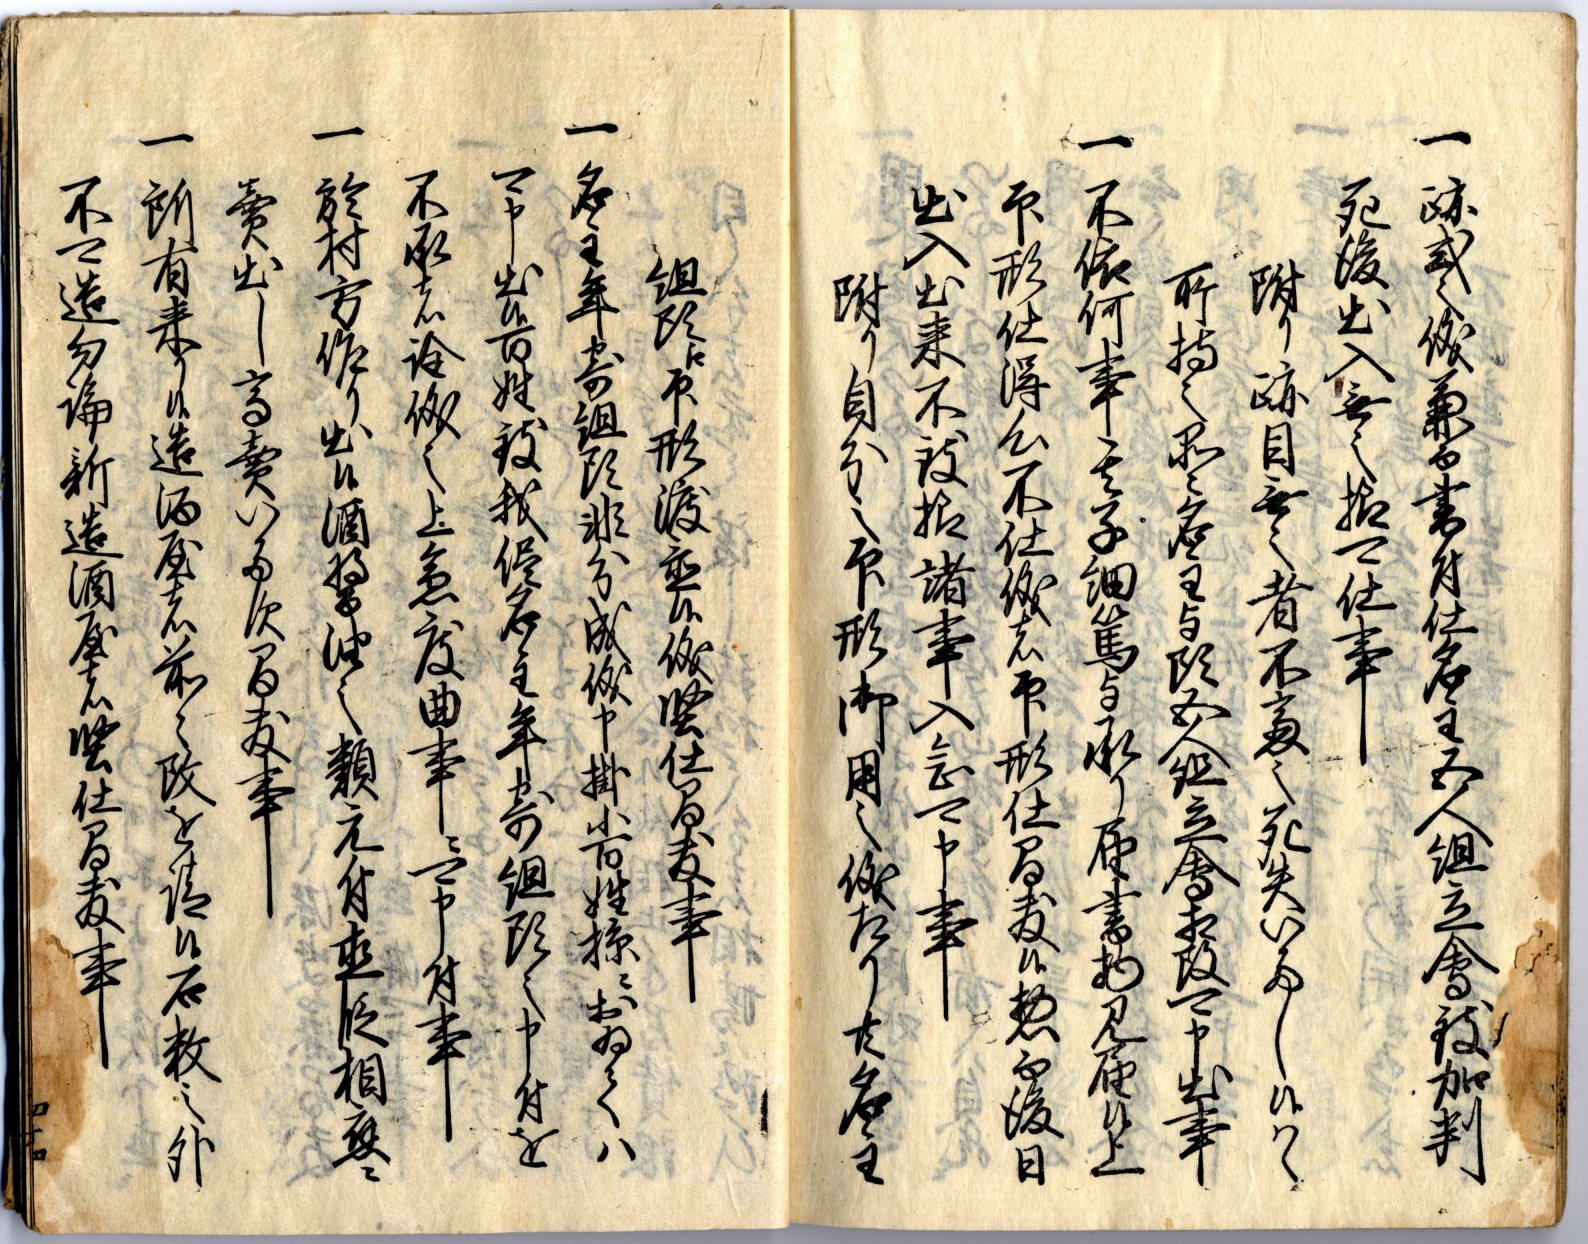 一 跡式之儀兼而書付仕名主五人組立會致加判
死後出入無之様可仕事
附り跡目無之者不慮之死失いたし候ハヽ
所持之品々名主与頭五人組立會相改可申出事
一 不依何事其子細篤与承り届書物見届候上
印形仕得心不仕儀者印形仕間敷候惣而後日
出入出来不致様諸事入念可申事
附り自分之印形御用之儀たり共名主
組頭江印形渡置候儀堅仕間敷事
一 名主年寄組頭非分成儀申掛小百姓掠ニおゐてハ
可申出候百姓致我侭名主年寄組頭之申付を
不承者詮儀之上急度曲事ニ可申付事
一 於村方作り出候酒醤油之類元付直段相應ニ
賣出し高賣いたす間敷事
一 所有来り候造酒屋者前々改を請候石数之外
不可造勿論新造酒屋者堅仕間敷事